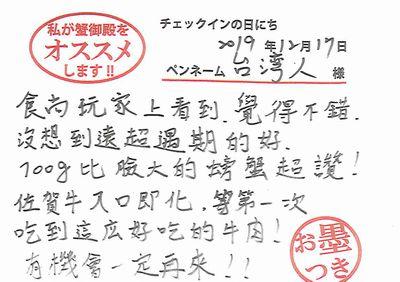 私が蟹御殿を
オススメ
します!!
チェックインの日にち
2019年12月17日
ペンネーム 台湾人 様
食尚玩家上看到.覺得不錯.
沒想到遠超過期的好.
100g比臉大的螃蟹超讚!
佐賀牛入口即化,等第一次
吃到這広好吃的牛肉!
有機會一定再來!!
お墨
つき